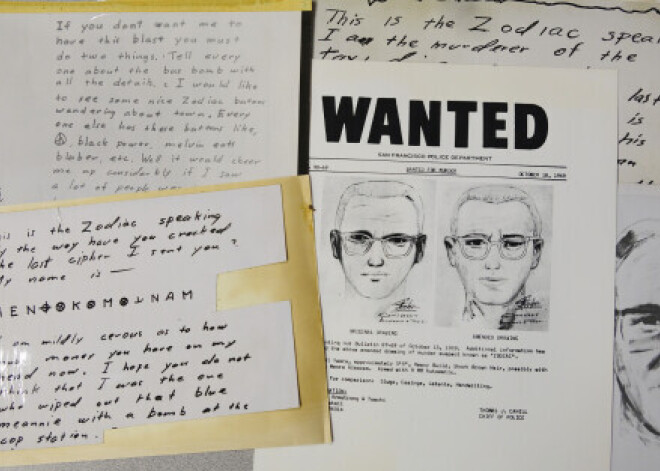 If you dont want me to
have this blast you must
do two things. Tell every
one about the bus bomb with
all the details. I would like
to see some nice Zodiac butons
wandering about town. Every
one else has these buttons like,
black power, melvin eats
bluber, etc. Well it would cheer
me up considerbly if I saw
a lot of people
This is the Zodiac
I am the murderer of the
last
is
his
WANTED
SAN FRANCISCO POLICE DEPARTMENT
WANTED FOR MURDER
OCTOBER 18, 1969
ORIGINAL DRAWING
AMENDED DRAWING
Bulletin 87-69 of October 13, 1969. Additional information has
the above amended drawing of murder suspect known as "ZODIAC".
Years, approximately Heavy Build, Short Brown Hair, possibly with
Armed with 9 MM Automatic.
for comparison: Slugs, Casings, Latents, Handwriting.
Armstrong & Toschi
THOMAS J. CAHILL
CHIEF OF POLICE
is is the Zodiac speaking
the way have you cracked
last cipher I sent you?
My name is —
mildly cerous as to how
money you have on my
now. I hope you do not
think that I was the one
who wiped out that blue
meannie with a bomb at the
cop station.